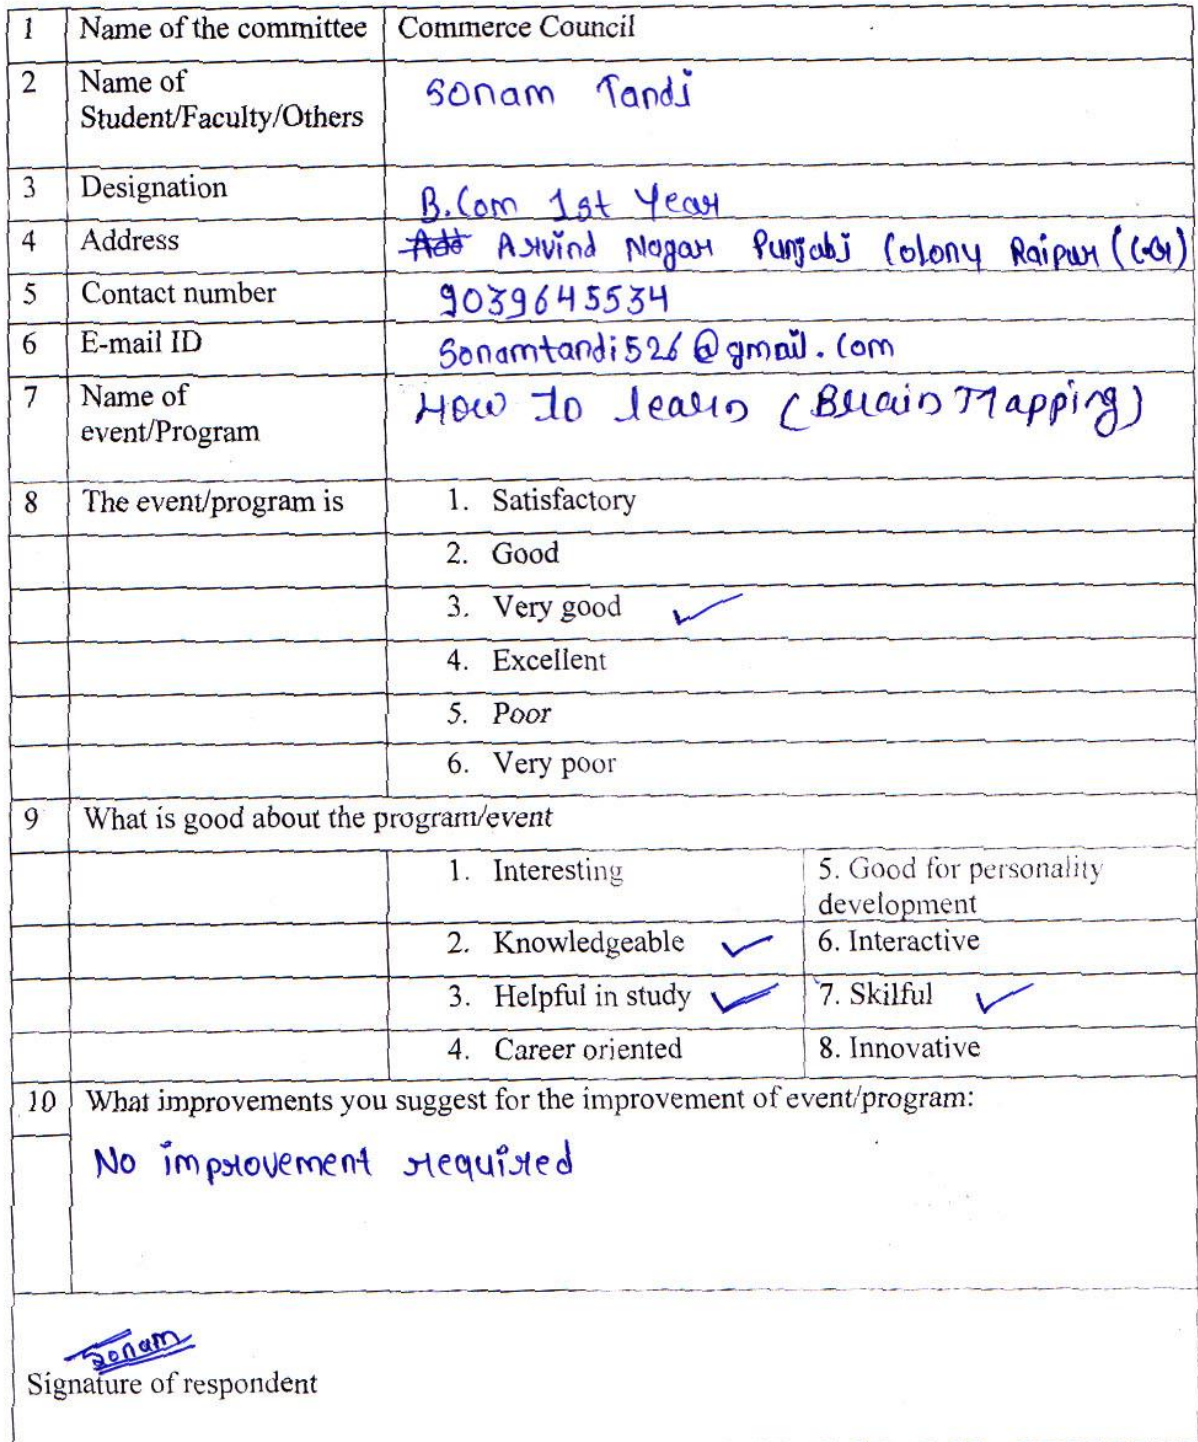 1 Name of the committee Commerce Council
2 Name of Sonam Tandi
Student/Faculty/Others
3 Designation B.Com 1st Year
4 Address Arvind Nagar Punjabi Colony Raipur (C.G)
5 Contact number 9039645534
6 E-mail ID Sonamtandi526@gmail.com
7 Name of How to learn (Brain Mapping)
event/Program
8 The event/program is 1. Satisfactory
2. Good
3. Very good ✓
4. Excellent
5. Poor
6. Very poor
9 What is good about the program/event
1. Interesting 5. Good for personality
development
2. Knowledgeable ✓ 6. Interactive
3. Helpful in study ✓ 7. Skilful ✓
4. Career oriented 8. Innovative
10 What improvements you suggest for the improvement of event/program:
No improvement required
Sonam
Signature of respondent